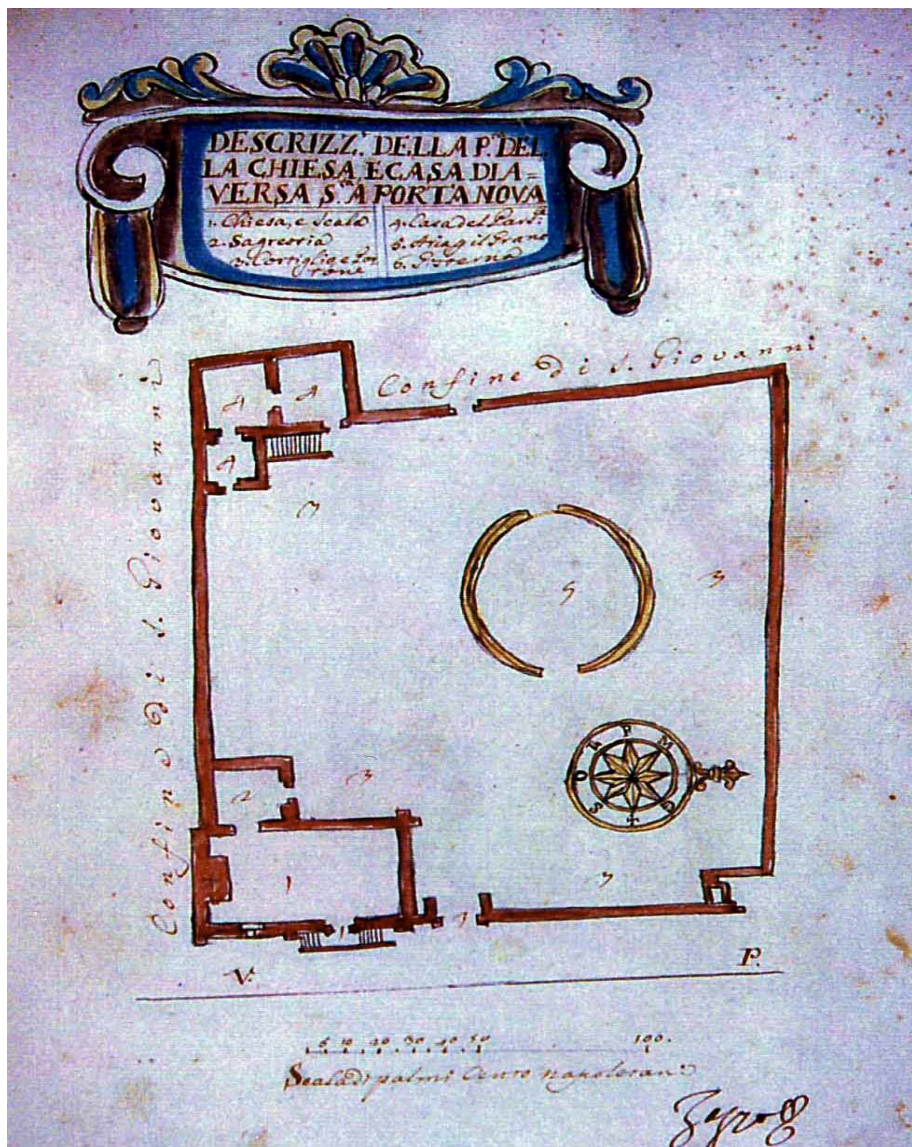 DESCRIZZ.e DELLA P.ta DEL
LA CHIESA, E CASA DI A=
VERSA S.ta A PORTA NOVA
1. Chiesa, e Scala
2. Sagrestia
3. Cortiglio e Por
tone
4. Casa del
5. Aria
6.
Confine di S. Giovanni
Confino di S. Giovanni
4 4
4
3
5 3
P M G S O L
2 3
1 3
1 3
V. P.
5 10 20 30 40 50 100.
Scala di palmi Cento napoletani